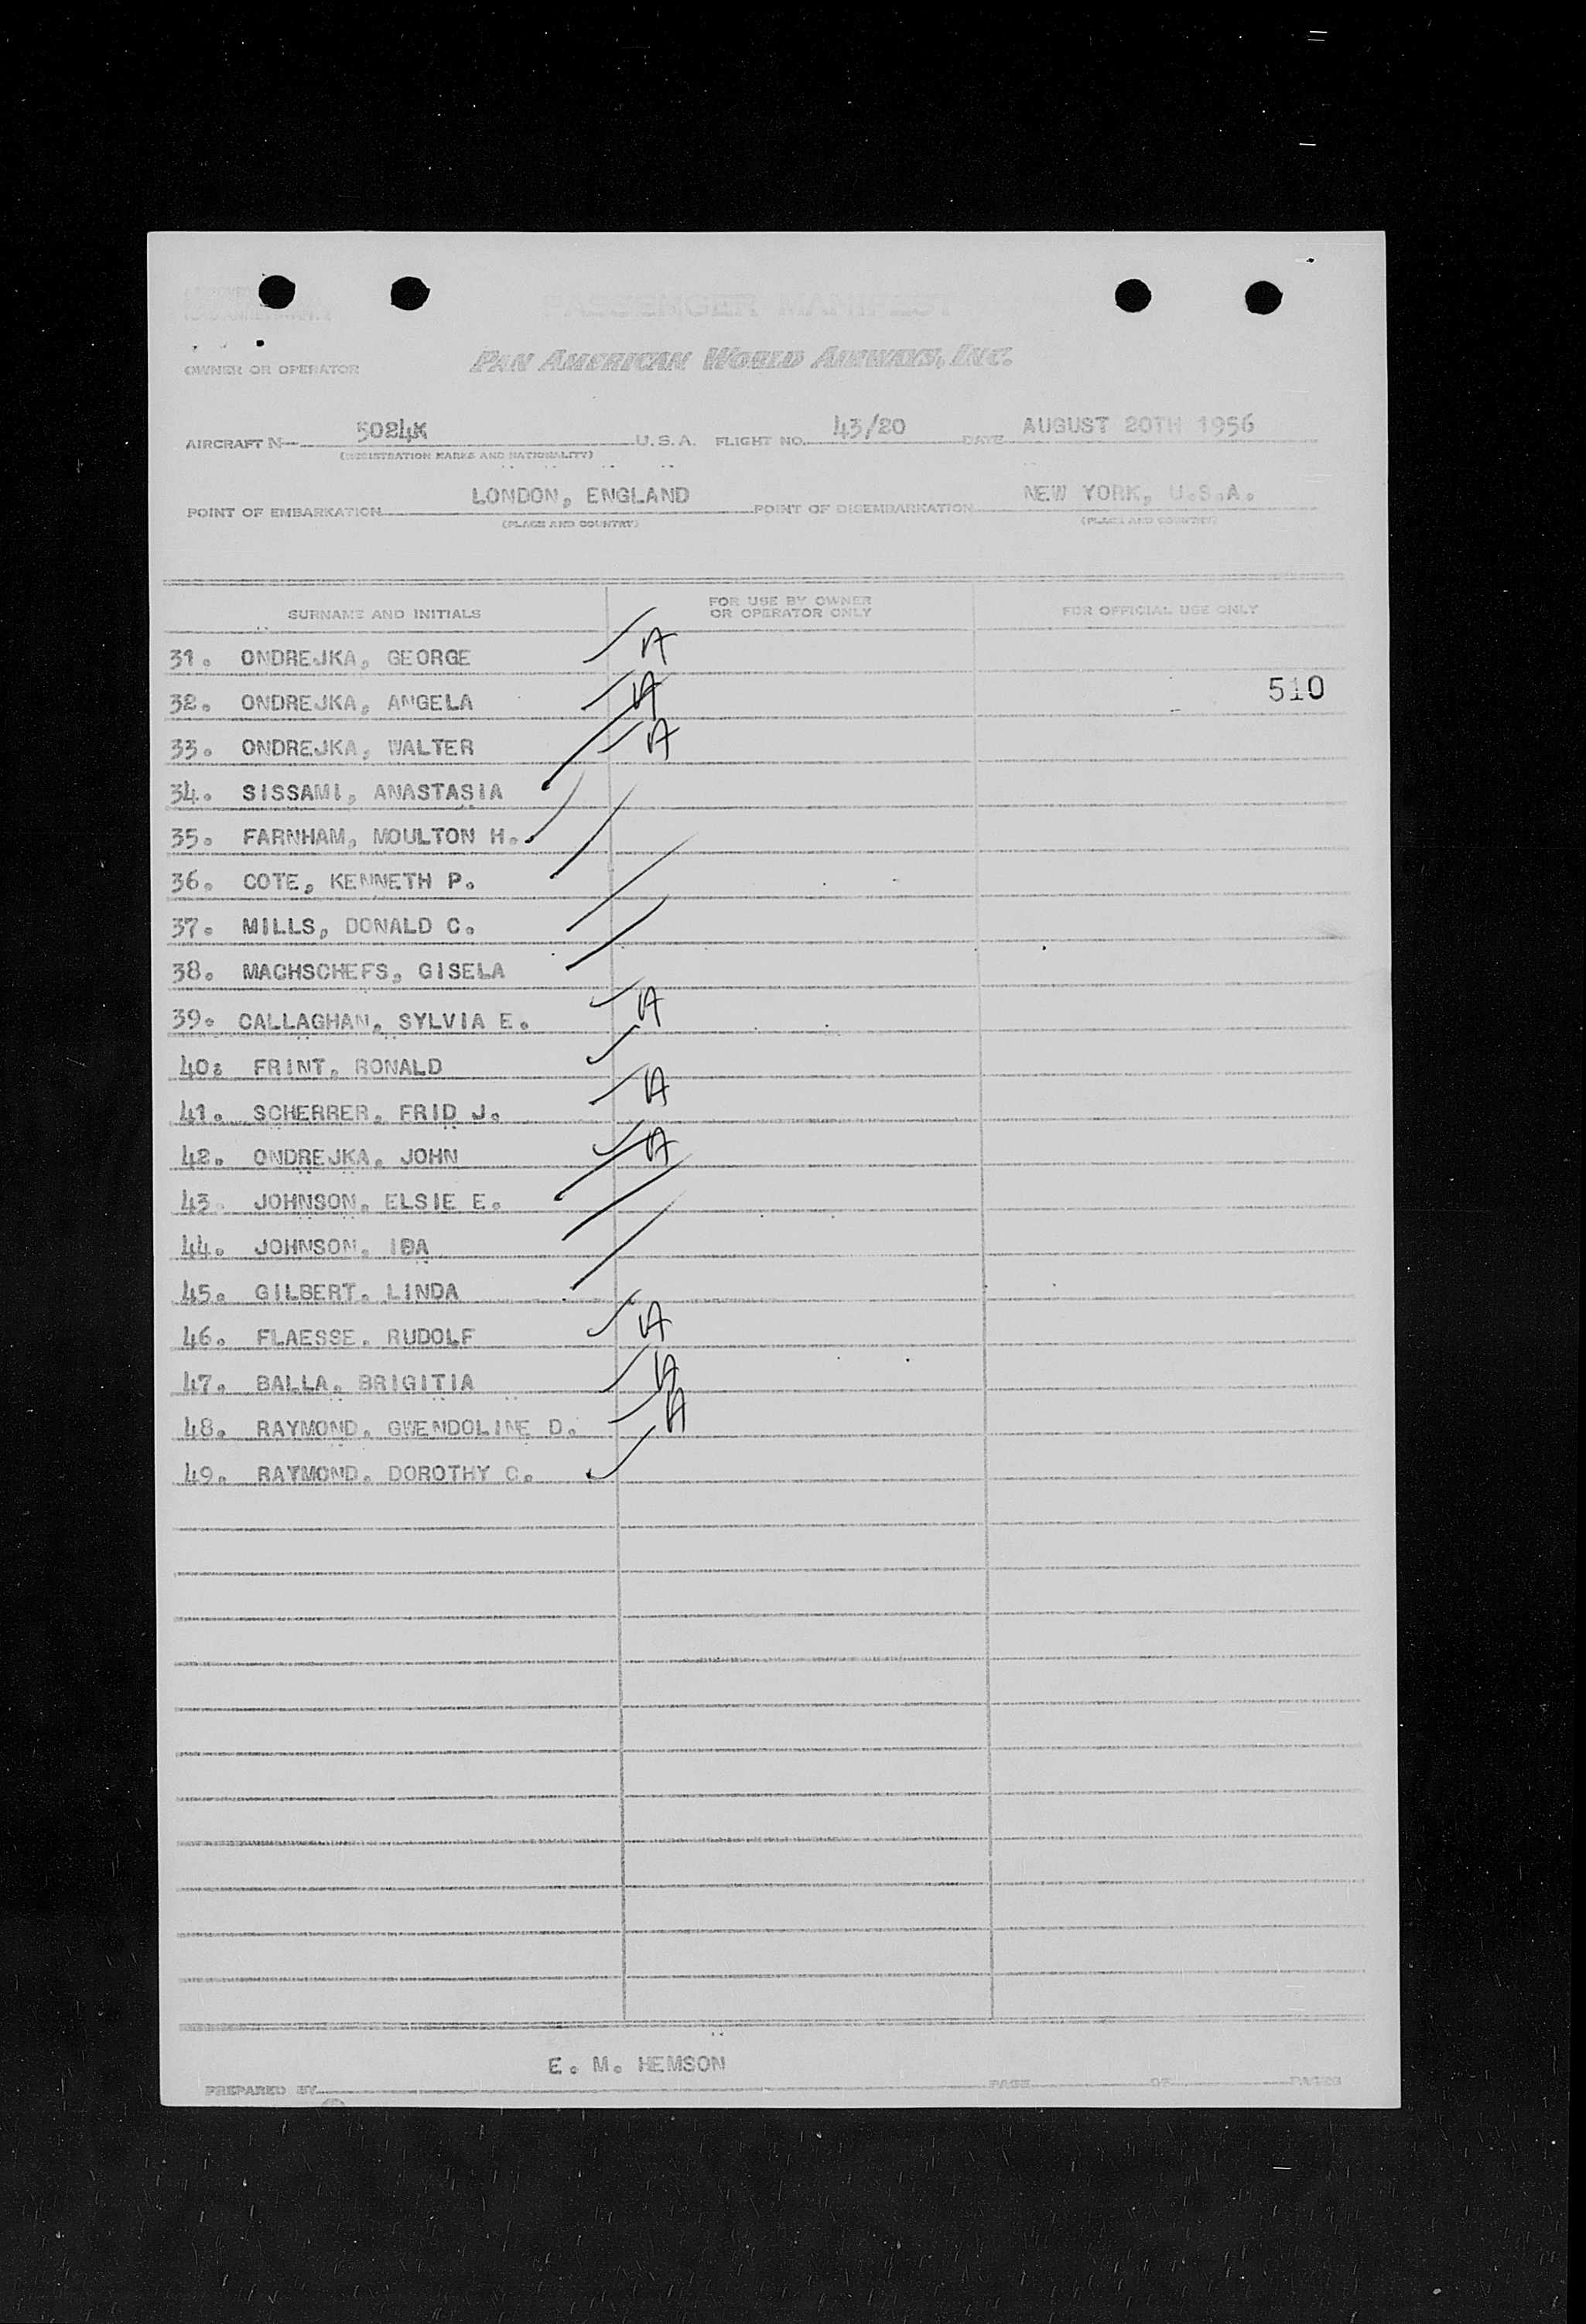 PASSENGER MANIFEST
OWNER OR OPERATOR PAN AMERICAN WORLD AIRWAYS, INC.
AIRCRAFT N— 5024K U.S.A. FLIGHT NO. 43/20 DATE AUGUST 20TH 1956
(REGISTRATION MARKS AND NATIONALITY)
POINT OF EMBARKATION LONDON, ENGLAND POINT OF DISEMBARKATION NEW YORK, U.S.A.
(PLACE AND COUNTRY) (PLACE AND COUNTRY)
SURNAME AND INITIALS FOR USE BY OWNER OR OPERATOR ONLY FOR OFFICIAL USE ONLY
31. ONDREJKA, GEORGE
32. ONDREJKA, ANGELA 510
33. ONDREJKA, WALTER
34. SISSAMI, ANASTASIA
35. FARNHAM, MOULTON H.
36. COTE, KENNETH P.
37. MILLS, DONALD C.
38. MACHSCHEFS, GISELA
39. CALLAGHAN, SYLVIA E.
40. FRINT, RONALD
41. SCHERRER, FRID J.
42. ONDREJKA, JOHN
43. JOHNSON, ELSIE E.
44. JOHNSON, IDA
45. GILBERT, LINDA
46. FLAESSE, RUDOLF
47. BALLA, BRIGITIA
48. RAYMOND, GWENDOLINE D.
49. RAYMOND, DOROTHY C.
E. M. HEMSON
PREPARED BY PAGE OF PAGES